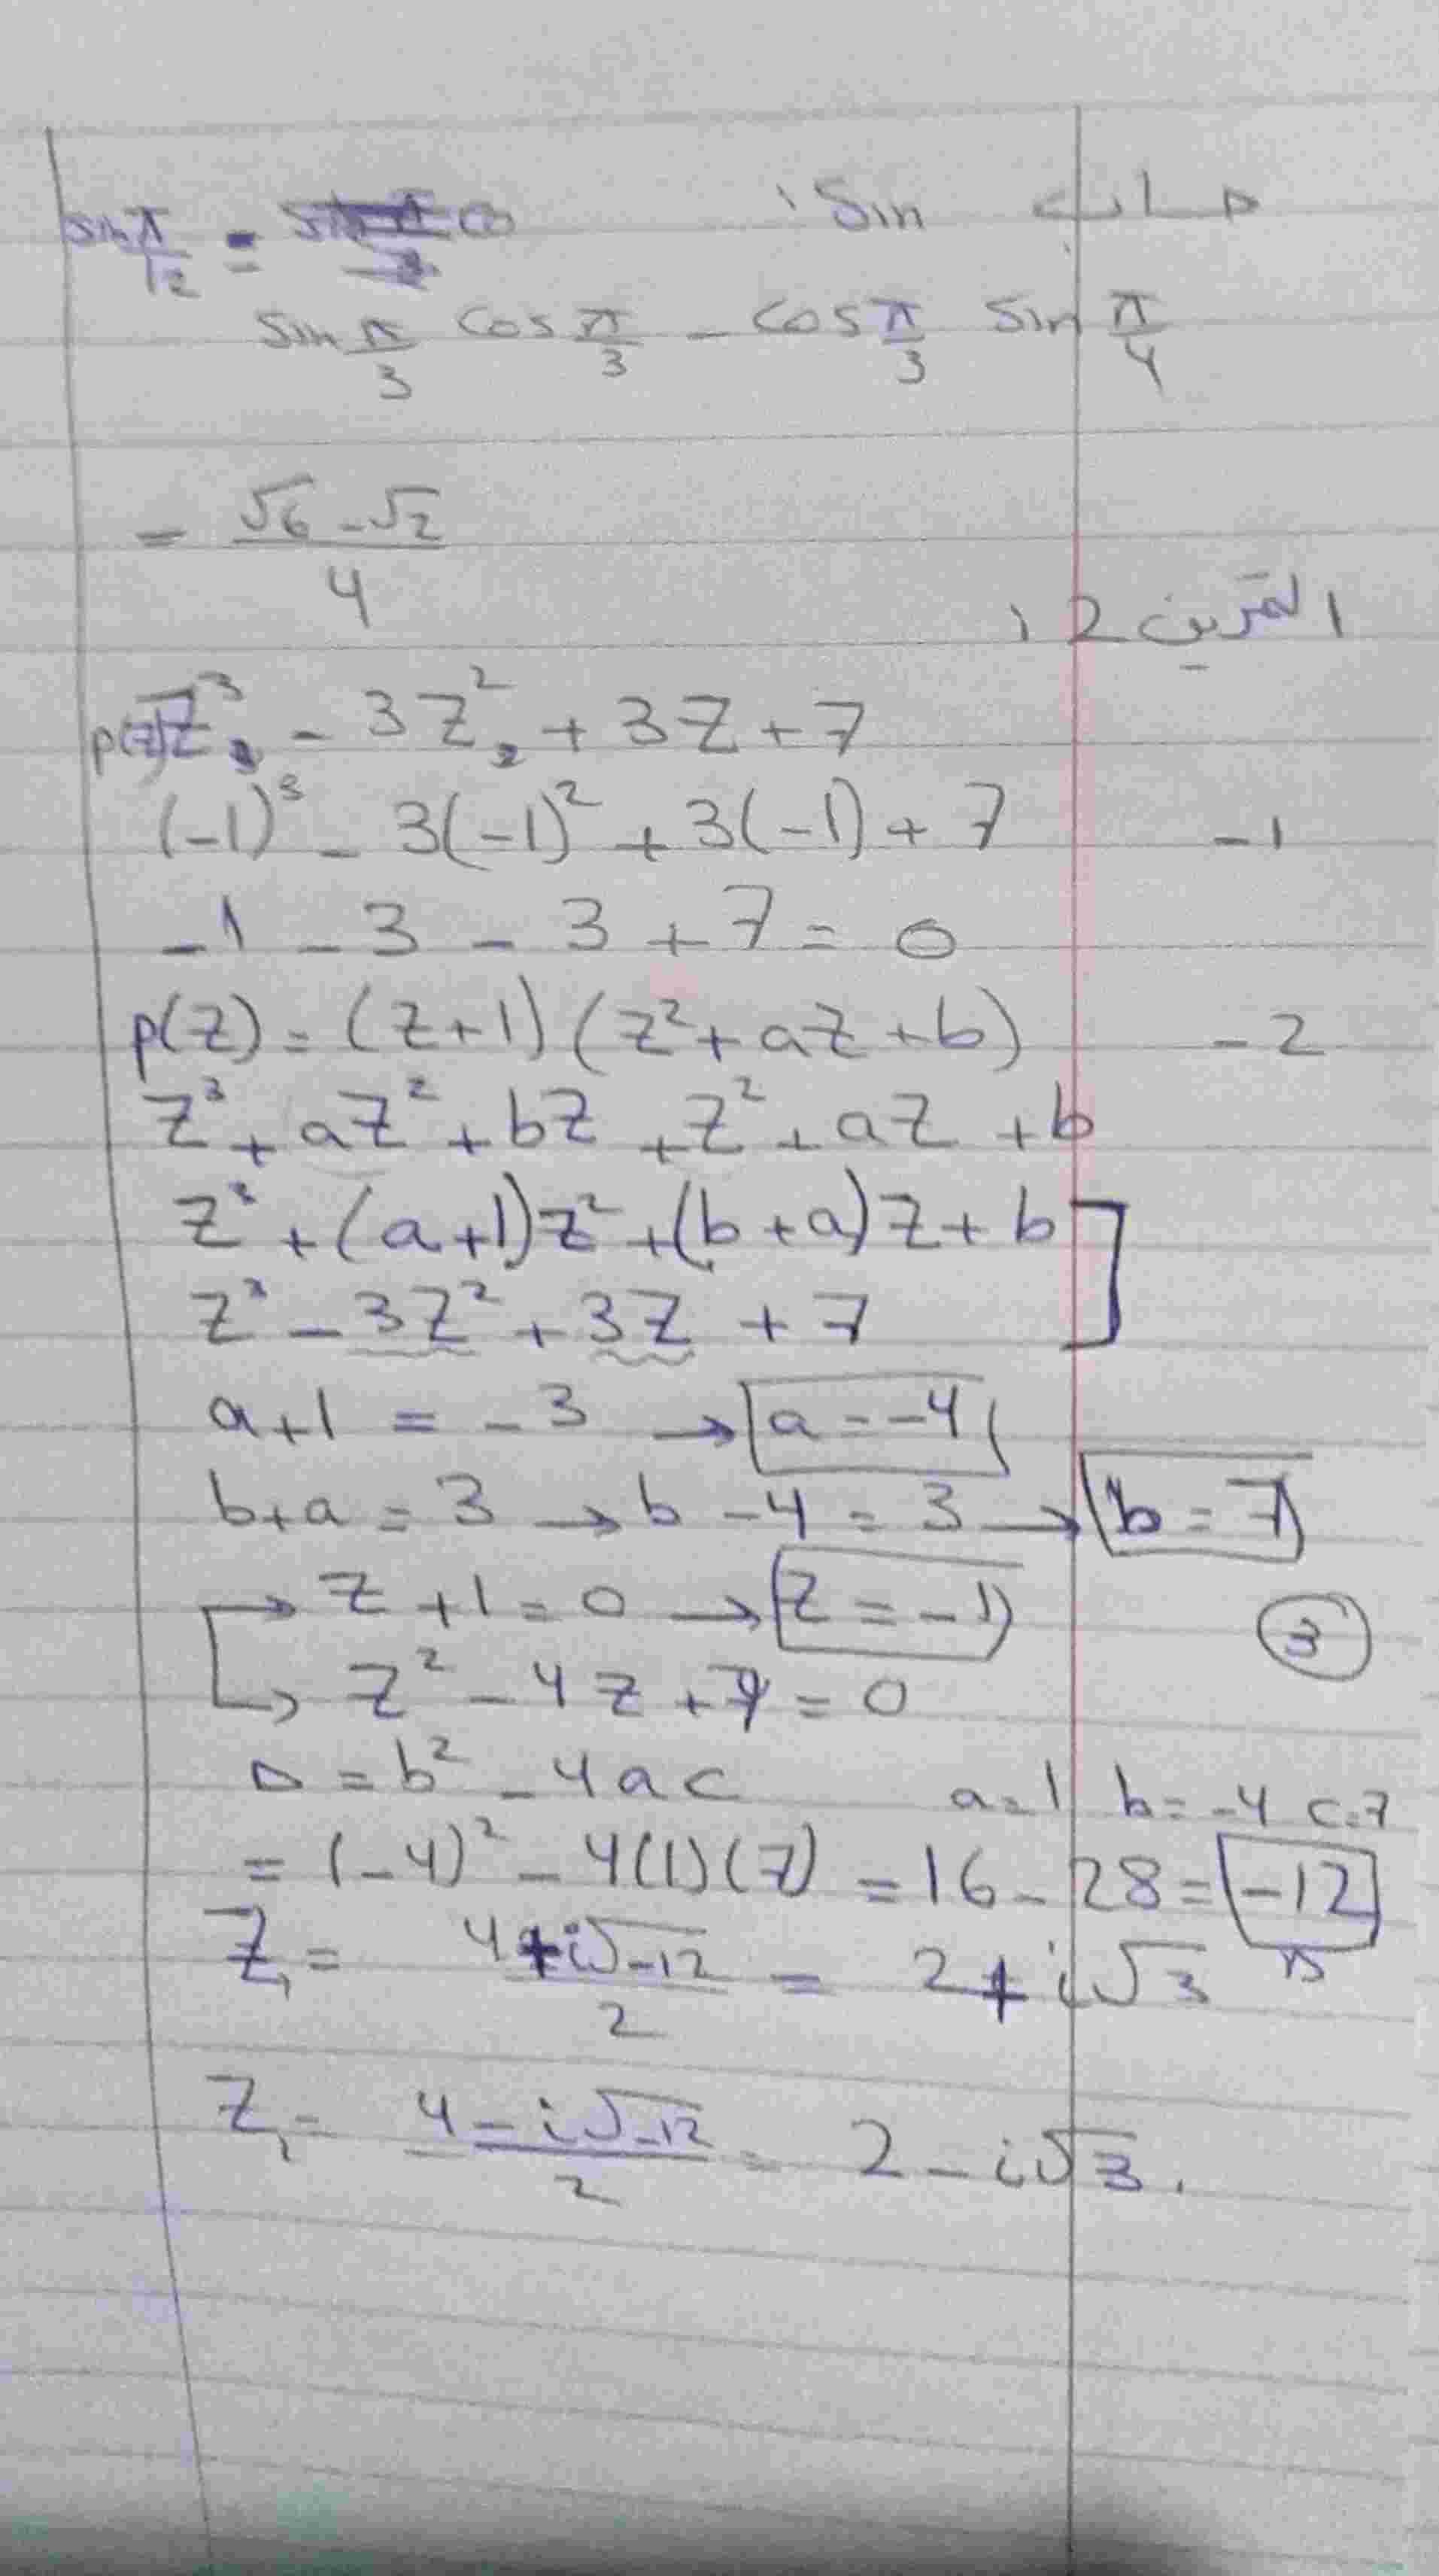 حساب sin :
sin π/12 =
sin π/3 cos π/3 - cos π/3 sin π/4
= (√6 - √2)/4
التمرين 2 :
p(z) z³ - 3z² + 3z + 7
(-1)³ - 3(-1)² + 3(-1) + 7 -1
-1 - 3 - 3 + 7 = 0
p(z) = (z+1)(z² + az + b) -2
z³ + az² + bz + z² + az + b
z³ + (a+1)z² + (b+a)z + b
z³ - 3z² + 3z + 7
a+1 = -3 → a = -4
b+a = 3 → b - 4 = 3 → b = 7
→ z + 1 = 0 → z = -1 3
→ z² - 4z + 7 = 0
Δ = b² - 4ac a=1 b=-4 c=7
= (-4)² - 4(1)(7) = 16 - 28 = -12
z₁ = (4 + i√-12)/2 = 2 + i√3
z₂ = (4 - i√-12)/2 = 2 - i√3.